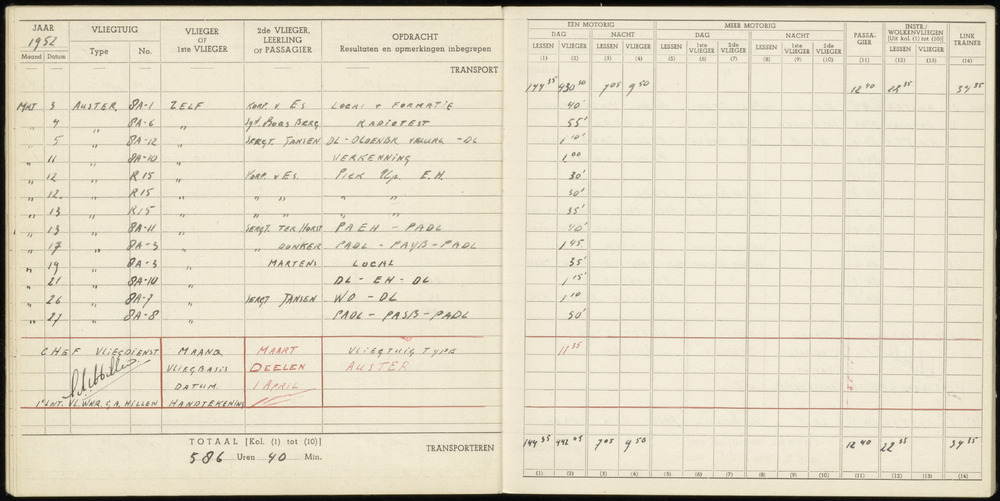 JAAR VLIEGTUIG VLIEGER OF 1ste VLIEGER 2de VLIEGER, LEERLING OF PASSAGIER OPDRACHT Resultaten en opmerkingen inbegrepen
1952 Type No.
Maand Datum
TRANSPORT
MRT 3 AUSTER 8A-1 ZELF KORP. v ES LOCAL + FORMATIE
" 4 " 8A-6 " RADIOTEST
" 5 " 8A-12 " SERGT. JANSEN DL - - DL
" 11 8A-10 VERKENNING
" 12 " R15 " KORP. v ES. PICK Up. E.H.
" 12. " R15 " " " " "
" 13 " R15 " " " " "
" 13 " 8A-11 " SERGT. TER HORST PAEH - PADL
" 17 " 8A-3 " " DONKER PADL - PAYB - PADL
" 19 8A-3 " MARTENS LOCAL
" 21 8A-10 " DL - EH - DL
" 26 " 8A-7 " SERGT JANSEN WO - DL
" 27 " 8A-8 " PADL - PASB - PADL
CHEF VLIEGDIENST MAAND MAART VLIEGTUIG TYPE
VLIEGBASIS DEELEN AUSTER
DATUM 1 APRIL
1e LNT. VL. WNR. G.A. HILLEN HANDTEKENING
TOTAAL [Kol. (1) tot (10)] TRANSPORTEREN
586 Uren 40 Min.
EEN MOTORIG MEER MOTORIG PASSA-GIER INSTR./WOLKENVLIEGEN [Uit kol. (1) tot (10)] LINK TRAINER
DAG NACHT DAG NACHT
LESSEN VLIEGER LESSEN VLIEGER LESSEN 1ste VLIEGER 2de VLIEGER LESSEN 1ste VLIEGER 2de VLIEGER LESSEN VLIEGER
(1) (2) (3) (4) (5) (6) (7) (8) (9) (10) (11) (12) (13) (14)
144 35 430 30 7 05 9 50 12 40 22 35 34 35
40'
55'
1 10'
1 00
30'
30'
35'
40'
1 45
35'
1 15'
1 10
50'
11 35
144 35 442 05 7 05 9 50 12 40 22 35 34 35
(1) (2) (3) (4) (5) (6) (7) (8) (9) (10) (11) (12) (13) (14)